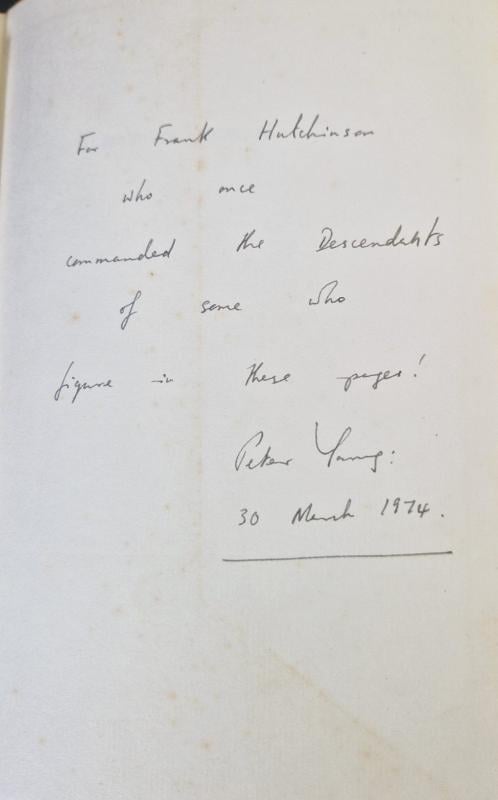 For Frank Hutchinson
who once
commanded the Descendants
of some who
figure in these pages!
Peter Young:
30 March 1974.